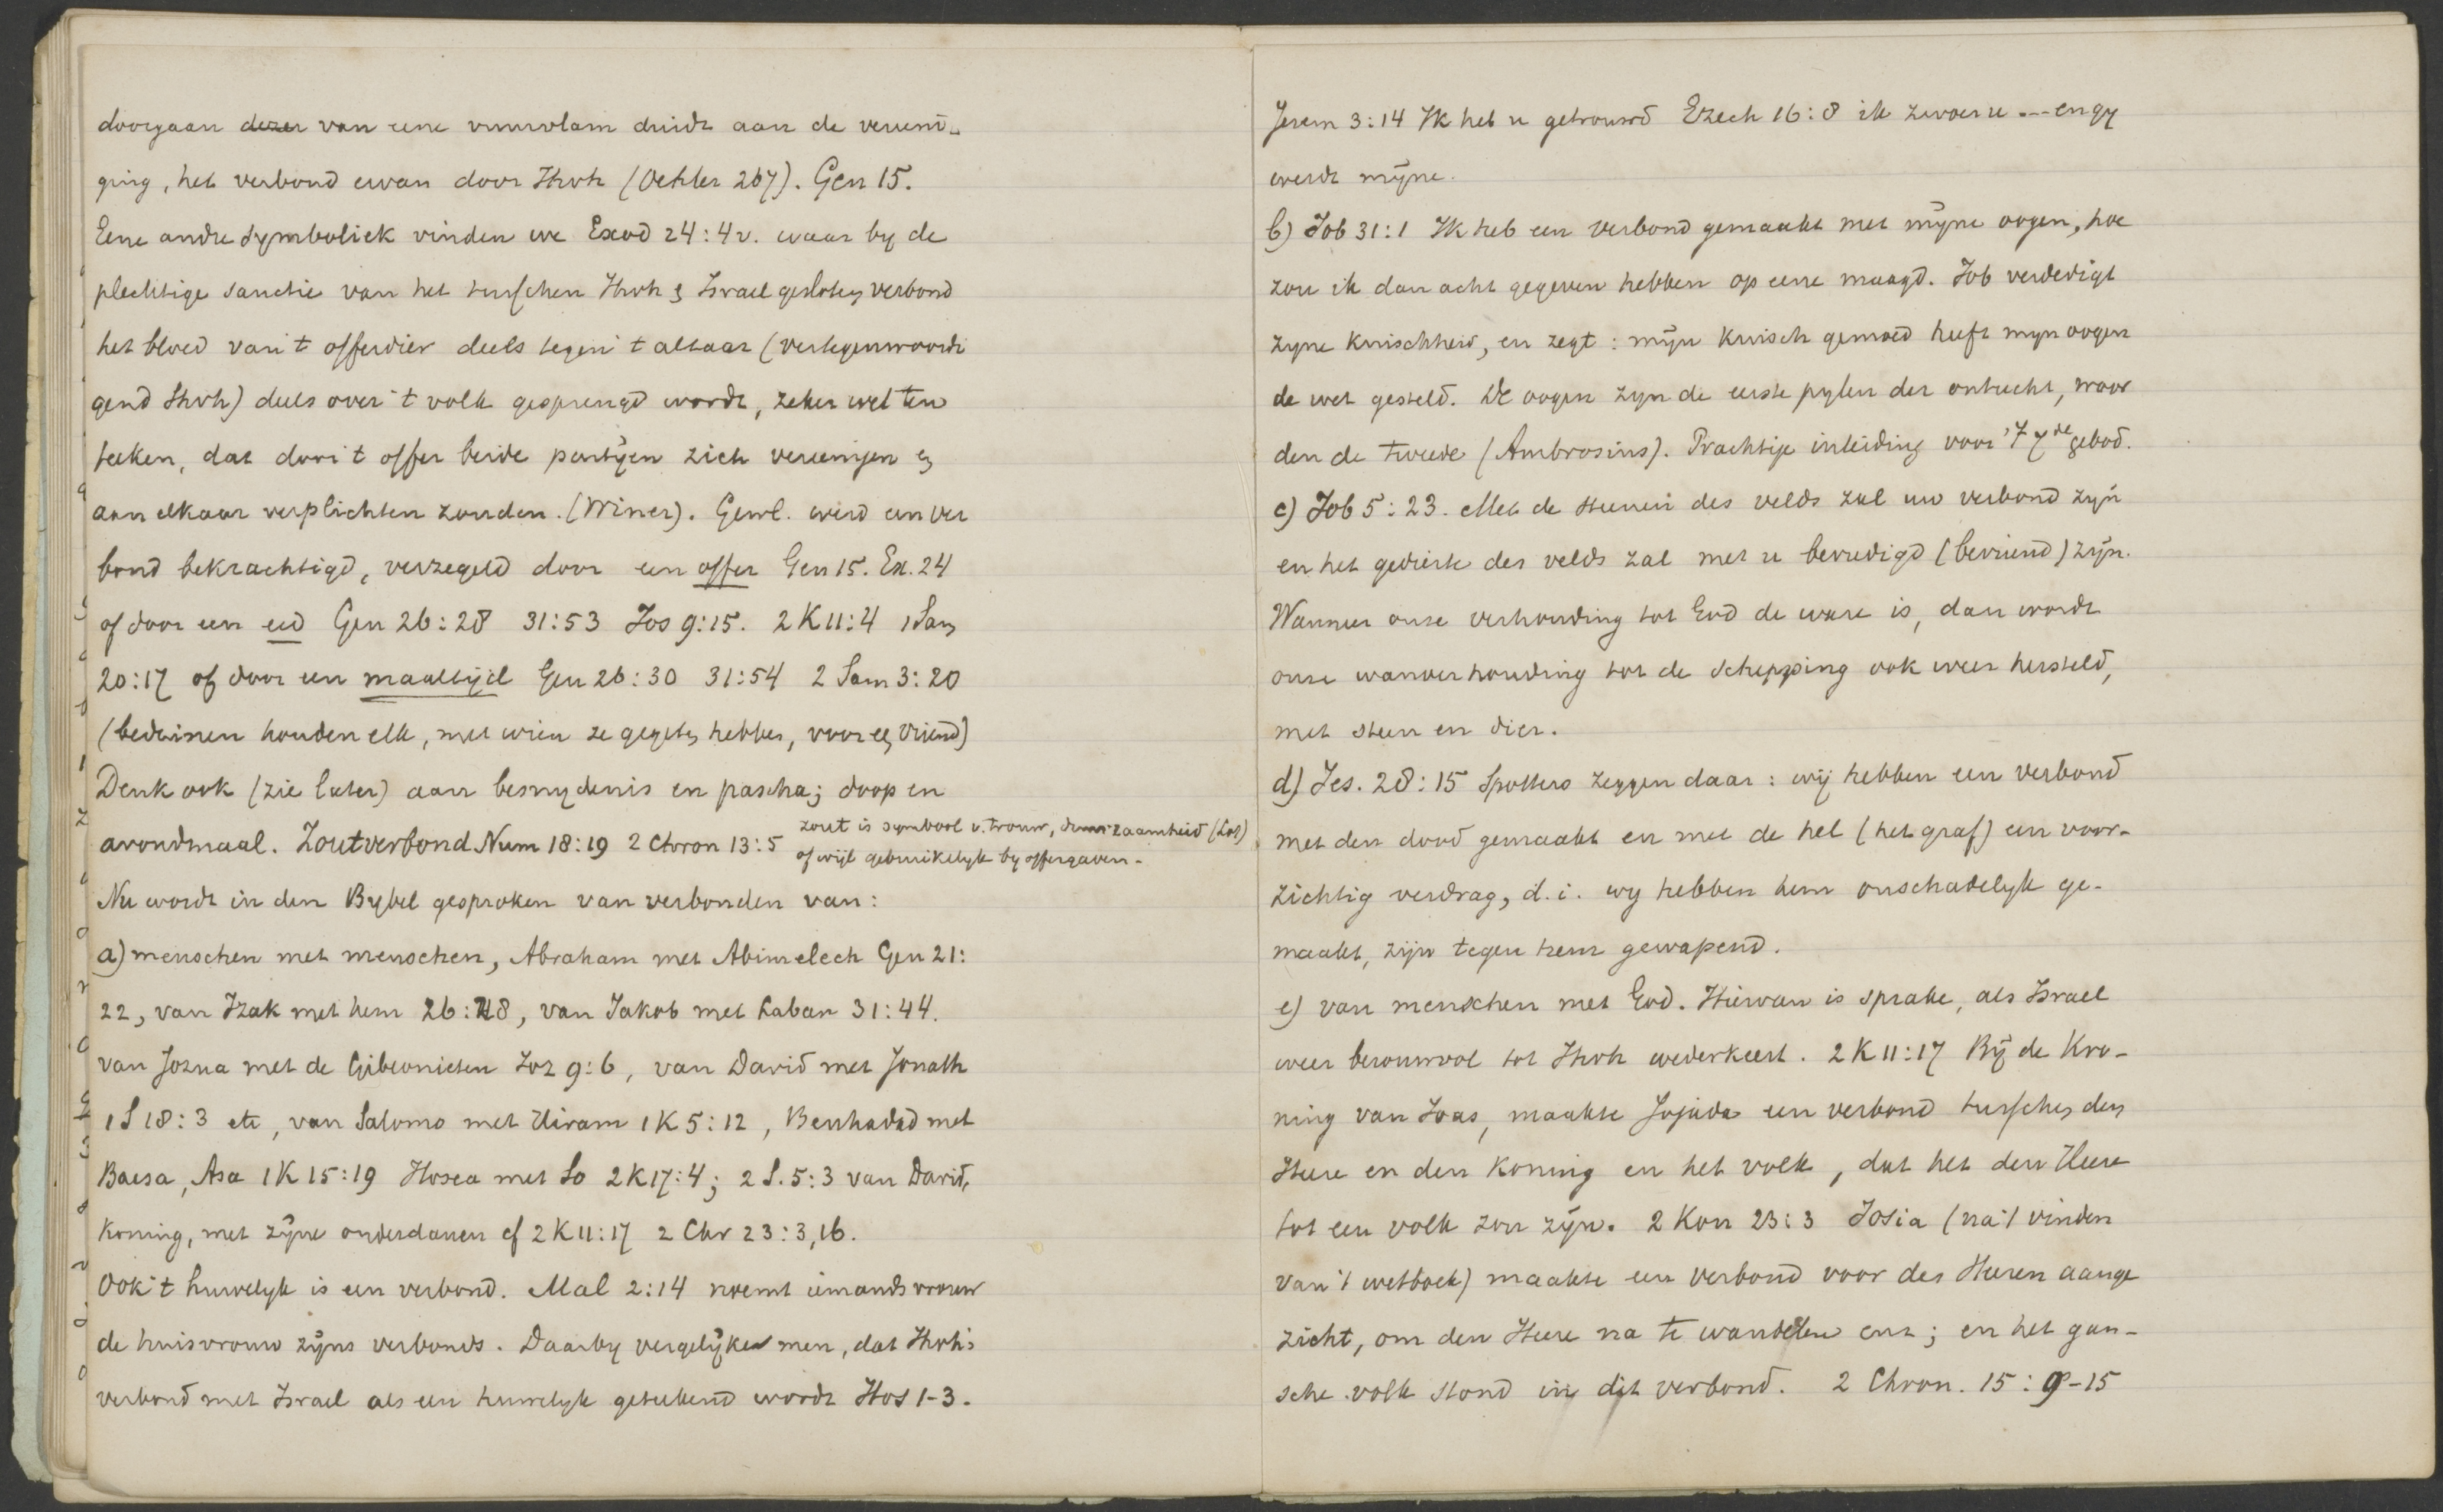 doorgaan dezer van eene vuurvlam duidt aan de vereeni-
ging, het verbond ervan door Jhvh (Oehler 267). Gen 15.
Eene andre symboliek vinden we Exod 24:4v. waar by de
plechtige sanctie van het tusschen Jhvh & Israel gesloten verbond
het bloed van 't offerdier deels tegen 't altaar (vertegenwoordi
gend Jhvh) deels over 't volk gesprengd wordt, zeker wel ten
teeken, dat door 't offer beide partijen zich vereenigen en
aan elkaar verplichten zouden. (Winer). Gewl. werd een ver
bond bekrachtigd, verzegeld door een offer Gen 15. Ex. 24
of door een eed Gen 26:28 31:53 Jos 9:15. 2 K 11:4 1 Sam
20:17 of door een maaltijd Gen 26:30 31:54 2 Sam 3:20
(bedwinen houden elk, met wien ze gegeten hebben, voor een vriend)
Denk ook (zie later) aan besnydenis en pascha; doop en
avondmaal. Zoutverbond Num 18:19 2 Chron 13:5 zout is symbool v. trouw, duurzaamheid (Lot)
of wijl gebruikelyk by offergaven.
Nu wordt in den Bybel gesproken van verbonden van:
a) menschen met menschen, Abraham met Abimelech Gen 21:
22, van Izak met hem 26:28, van Jakob met Laban 31:44.
van Jozua met de Gibeonieten Joz 9:6, van David met Jonath
1 S 18:3 etc, van Salomo met Hiram 1 K 5:12, Benhadad met
Baesa, Asa 1 K 15:19 Hosea met So 2 K 17:4; 2 S. 5:3 van David,
koning, met zijne onderdanen cf 2 K 11:17 2 Chr 23:3,16.
Ook 't huwelyk is een verbond. Mal 2:14 noemt iemands vrouw
de huisvrouw zijns verbonds. Daarby vergelijke men, dat Jhvh's
verbond met Israel als een huwelyk geteekend wordt Hos 1-3.
Jerem 3:14 Ik heb u getrouwd Ezech 16:8 ik zwoer u --- en gy
werdt mijne.
b) Job 31:1 Ik heb een verbond gemaakt met mijne oogen, hoe
zou ik dan acht gegeven hebben op eene maagd. Job verdedigt
zyne kuischheid, en zegt: mijn kuisch gemoed heeft myn oogen
de wet gesteld. De oogen zyn de eerste pylen der ontucht, woor
den de tweede (Ambrosius). Prachtige inleiding voor 't 7de gebod.
c) Job 5:23. Met de steenen des velds zal uw verbond zijn
en het gedierte des velds zal met u bevredigd (bevriend) zijn.
Wanneer onze verhouding tot God de ware is, dan wordt
onze wanverhouding tot de schepping ook weer hersteld,
met steen en dier.
d) Jes. 28:15 Spotters zeggen daar: wij hebben een verbond
met den dood gemaakt en met de hel (het graf) een voor-
zichtig verdrag, d.i. wy hebben hem onschadelyk ge-
maakt, zijn tegen hem gewapend.
e) van menschen met God. Hiervan is sprake, als Israel
weer berouwvol tot Jhvh wederkeert. 2 K 11:17 Bij de kro-
ning van Joas, maakte Jojada een verbond tusschen den
Heere en den koning en het volk, dat het den Heere
tot een volk zou zijn. 2 Kon 23:3 Josia (na 't vinden
van 't wetboek) maakte een verbond voor des Heeren aange
zicht, om den Heere na te wandelen enz; en het gan-
sche volk stond in dit verbond. 2 Chron. 15:9-15